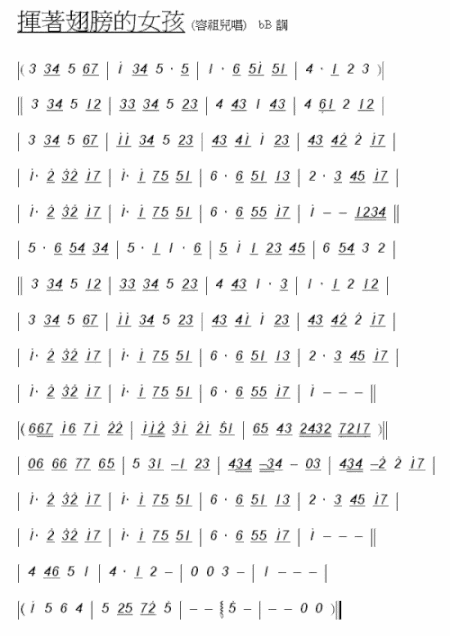 揮著翅膀的女孩 (容祖兒唱) bB 調
|( 3 34 5 67 | i 34 5 · 5 | 1 · 6 5i 51 | 4 · 1 2 3 )|
|| 3 34 5 12 | 33 34 5 23 | 4 43 1 43 | 4 61 2 12 |
| 3 34 5 67 | ii 34 5 23 | 43 4i i 23 | 43 42 2 i7 |
| i· 2 32 i7 | i· i 75 51 | 6 · 6 51 13 | 2 · 3 45 i7 |
| i· 2 32 i7 | i· i 75 51 | 6 · 6 55 i7 | i – – 1234 ||
| 5 · 6 54 34 | 5 · 1 1 · 6 | 5 i 1 23 45 | 6 54 3 2 |
|| 3 34 5 12 | 33 34 5 23 | 4 43 1 · 3 | 1 · 1 2 12 |
| 3 34 5 67 | ii 34 5 23 | 43 4i i 23 | 43 42 2 i7 |
| i· 2 32 i7 | i· i 75 51 | 6 · 6 51 13 | 2 · 3 45 i7 |
| i· 2 32 i7 | i· i 75 51 | 6 · 6 55 i7 | i – – – ||
|( 667 i6 7i 22 | ii2 3i 2i 51 | 65 43 2432 7217 )||
| 06 66 77 65 | 5 31 –1 23 | 434 –34 – 03 | 434 –2 2 i7 |
| i· 2 32 i7 | i· i 75 51 | 6 · 6 51 13 | 2 · 3 45 i7 |
| i· 2 32 i7 | i· i 75 51 | 6 · 6 55 i7 | i – – – ||
| 4 46 5 1 | 4 · 1 2 – | 0 0 3 – | 1 – – – |
|( i 5 6 4 | 5 25 72 5 | – – 5 – | – – 0 0 )||